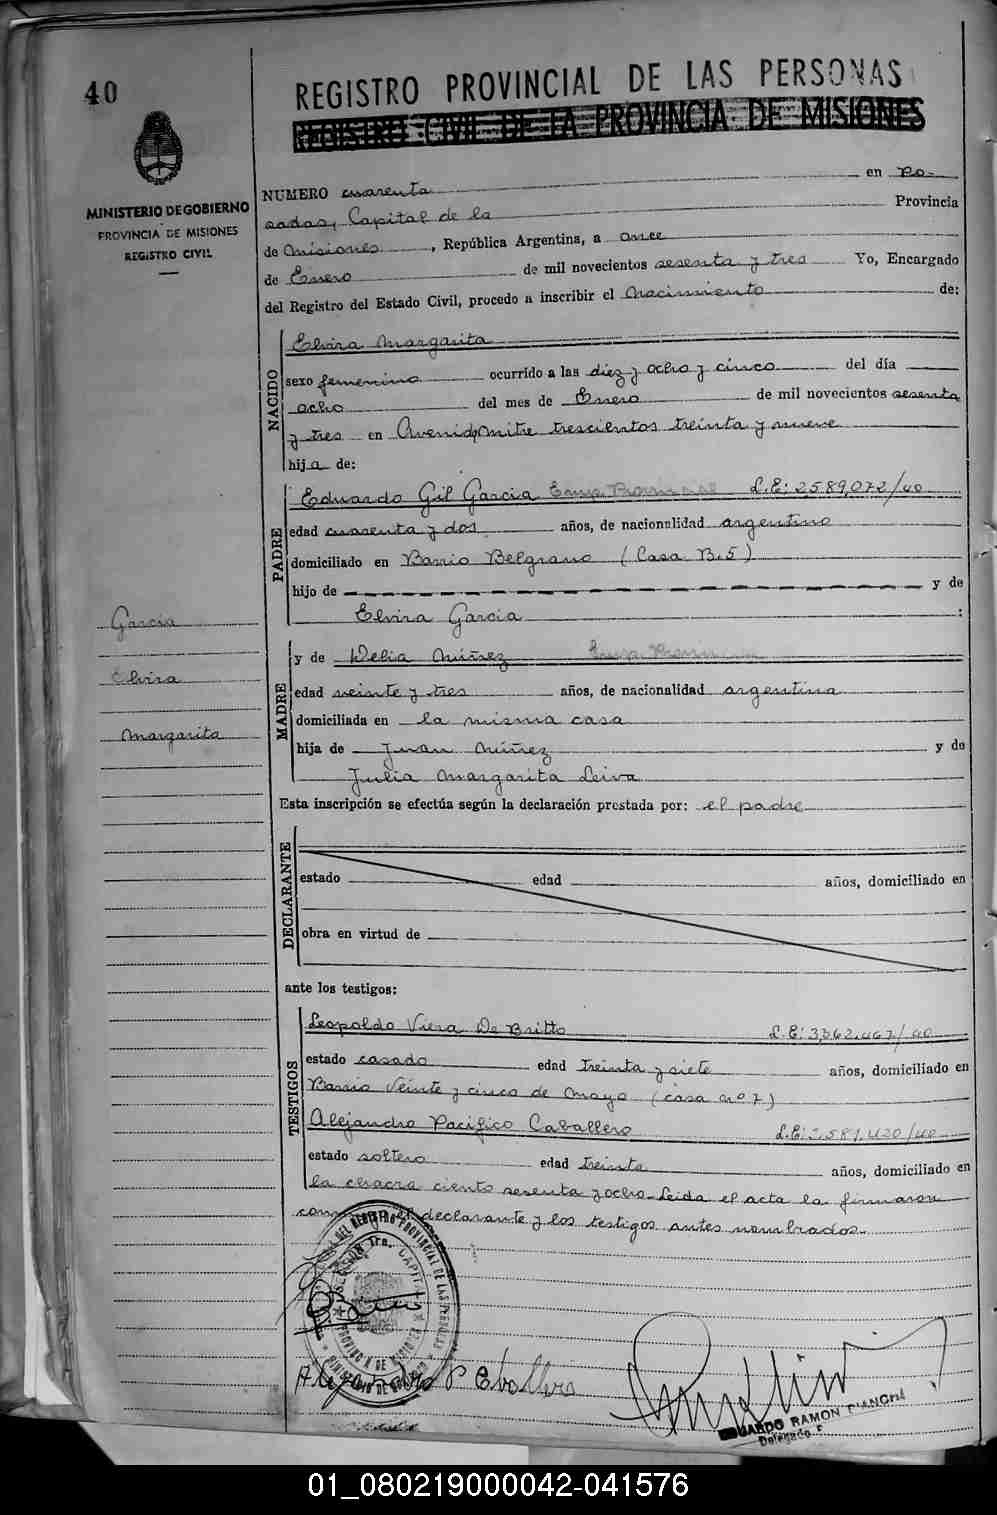 40
REGISTRO PROVINCIAL DE LAS PERSONAS
REGISTRO CIVIL DE LA PROVINCIA DE MISIONES
MINISTERIO DE GOBIERNO
PROVINCIA DE MISIONES
REGISTRO CIVIL
NUMERO cuarenta en Po-
sadas, Capital de la Provincia
de Misiones, República Argentina, a once
de Enero de mil novecientos sesenta y tres Yo, Encargado
del Registro del Estado Civil, procedo a inscribir el Nacimiento de:
NACIDO
Elvira Margarita
sexo femenino ocurrido a las diez y ocho y cinco del día
ocho del mes de Enero de mil novecientos sesenta
y tres en Avenida Mitre trescientos treinta y nueve
hija de:
PADRE
Eduardo Gil Garcia L.E: 2.589.072/40
edad cuarenta y dos años, de nacionalidad argentino
domiciliado en Barrio Belgrano (Casa B.5)
hijo de y de
Elvira Garcia :
García
Elvira
Margarita
MADRE
y de Delia Núñez
edad veinte y tres años, de nacionalidad argentina
domiciliada en la misma casa
hija de Juan Núñez y de
Julia Margarita Leiva
Esta inscripción se efectúa según la declaración prestada por: el padre
DECLARANTE
estado edad años, domiciliado en
obra en virtud de
ante los testigos:
TESTIGOS
Leopoldo Viera De Britto L.E: 3.362.467/40
estado casado edad treinta y siete años, domiciliado en
Barrio Veinte y cinco de Mayo (casa nº 7)
Alejandro Pacífico Caballero L.E: 2.581.420/40
estado soltero edad treinta años, domiciliado en
la chacra ciento sesenta y ocho. Leida el acta la firmaron
declarante y los testigos antes nombrados.
DEL REGISTRO PROVINCIAL DE LAS PERSONAS
SECCION 1ra. CAPITAL
PROVINCIA DE MISIONES
MINISTERIO DE GOBIERNO
EDUARDO RAMON BIANCHI
Delegado
01_080219000042-041576